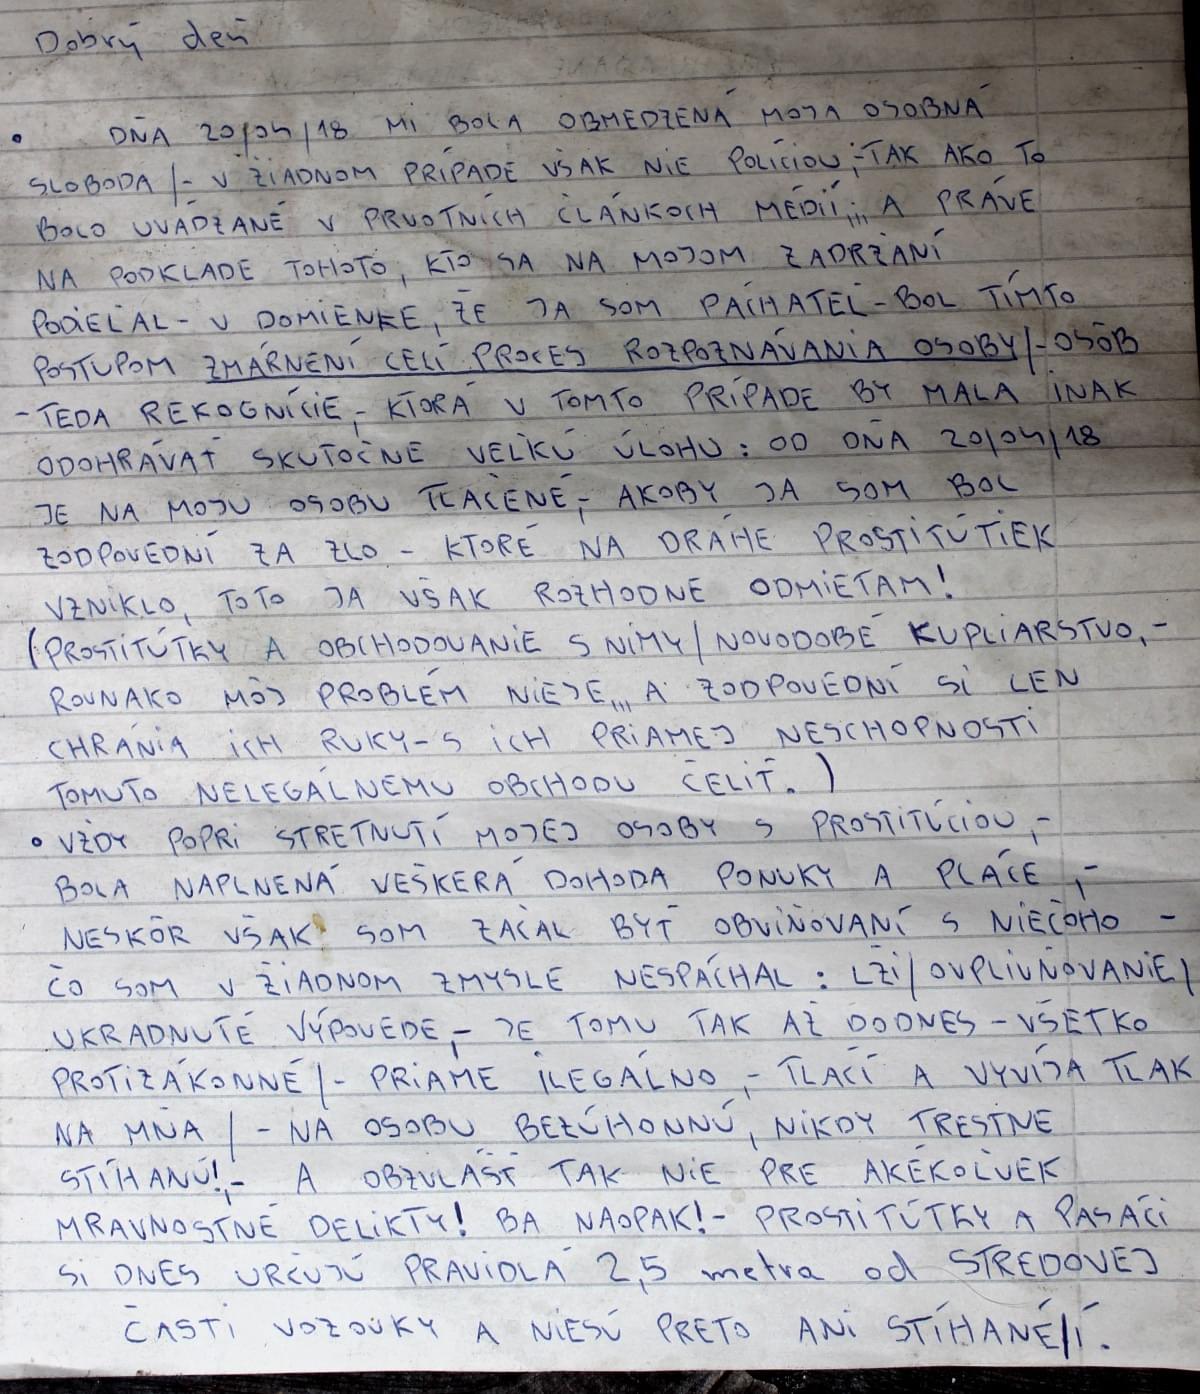 Dobrý deň
• DŇA 20/04/18 MI BOLA OBMEDZENÁ MOJA OSOBNÁ
SLOBODA/- V ŽIADNOM PRÍPADE VŠAK NIE POLÍCIOU,-TAK AKO TO
BOLO UVÁDZANÉ V PRVOTNÍCH ČLÁNKOCH MÉDIÍ,,, A PRÁVE
NA PODKLADE TOHOTO, KTO SA NA MOJOM ZADRŽANÍ
PODIEĽAL - V DOMIENKE, ŽE JA SOM PÁCHATEĽ - BOL TÍMTO
POSTUPOM ZMÁRNENÍ CELÍ PROCES ROZPOZNÁVANIA OSOBY/-OSÔB
- TEDA REKOGNÍCIE,- KTORÁ V TOMTO PRÍPADE BY MALA INAK
ODOHRÁVAŤ SKUTOČNE VELKÚ ÚLOHU: OD DŇA 20/04/18
JE NA MOJU OSOBU TLAČENÉ,- AKOBY JA SOM BOL
ZODPOVEDNÍ ZA ZLO - KTORÉ NA DRÁHE PROSTITÚTIEK
VZNIKLO, TOTO JA VŠAK ROZHODNE ODMIETAM!
(PROSTITÚTKY A OBCHODOVANIE S NIMY/NOVODOBÉ KUPLIARSTVO,-
ROVNAKO MÔJ PROBLÉM NIEJE,,, A ZODPOVEDNÍ SI LEN
CHRÁNIA ICH RUKY-S ICH PRIAMEJ NESCHOPNOSTI
TOMUTO NELEGÁLNEMU OBCHODU ČELIŤ.)
• VŽDY POPRI STRETNUTÍ MOJEJ OSOBY S PROSTITÚCIOU,-
BOLA NAPLNENÁ VEŠKERÁ DOHODA PONUKY A PLÁCE,-
NESKÔR VŠAK SOM ZAČAL BYŤ OBVIŇOVANÍ S NIEČOHO -
ČO SOM V ŽIADNOM ZMYSLE NESPÁCHAL: LŽI/OVPLIVŇOVANIE/
UKRADNUTÉ VÝPOVEDE,- JE TOMU TAK AŽ DODNES - VŠETKO
PROTIZÁKONNÉ/- PRIAME ILEGÁLNO,- TLAČÍ A VYVÍJA TLAK
NA MŇA/- NA OSOBU BEZÚHONNÚ, NIKDY TRESTNE
STÍHANÚ!,- A OBZVLÁŠŤ TAK NIE PRE AKÉKOĽVEK
MRAVNOSTNÉ DELIKTY! BA NAOPAK!- PROSTITÚTKY A PASÁCI
SI DNES URČUJÚ PRAVIDLÁ 2,5 metra od STREDOVEJ
ČASTI VOZOVKY A NIESÚ PRETO ANI STÍHANÉ/Í.